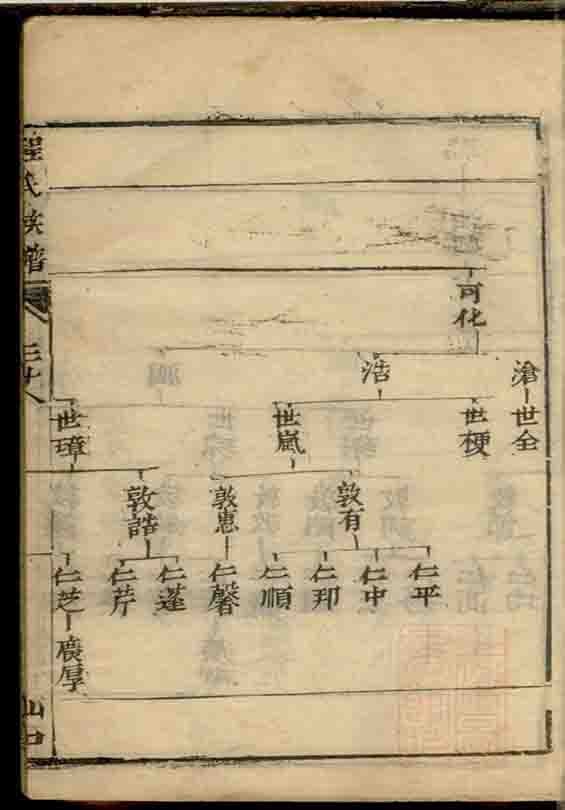 可化
滄 浩
世全 世梗 世嵐 世璋
敦有 敦惠 敦誥
仁平 仁中 仁邦 仁順 仁馨 仁蓬 仁芹 仁芝
廣厚
程氏族譜
山口